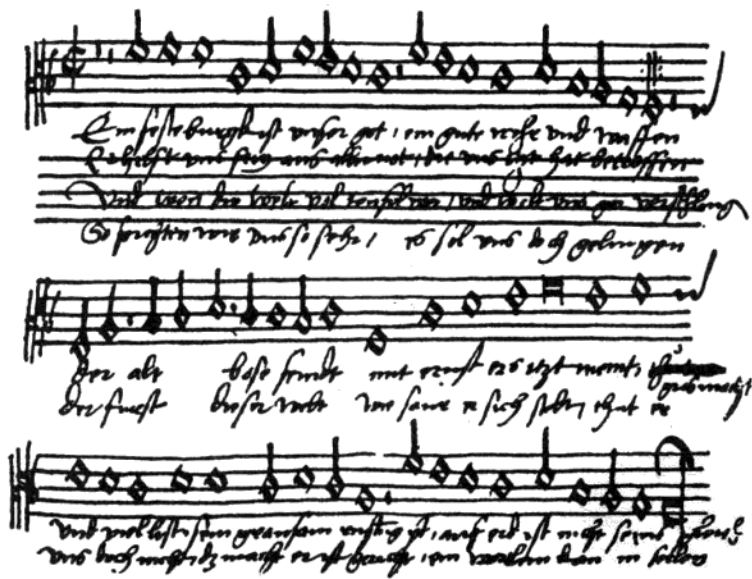 Ein feste burgk ist unser got, ein gute wehr und waffen
Er hilfft uns frey aus aller not, die uns hat betroffen
Und wen die welt vol teufel wer, und wolt uns gar verschling
So forchten wir uns so sehr, es sol uns doch gelingen
der alt bose feindt mit ernst ers itzt meint,
der furst dieser welt wie saur er sich stelt, thut er
und viel list sein grausam rustung ist, auf erd ist nicht seins
uns doch nicht, dz macht er ist gericht, ein wortlein kan in fellen